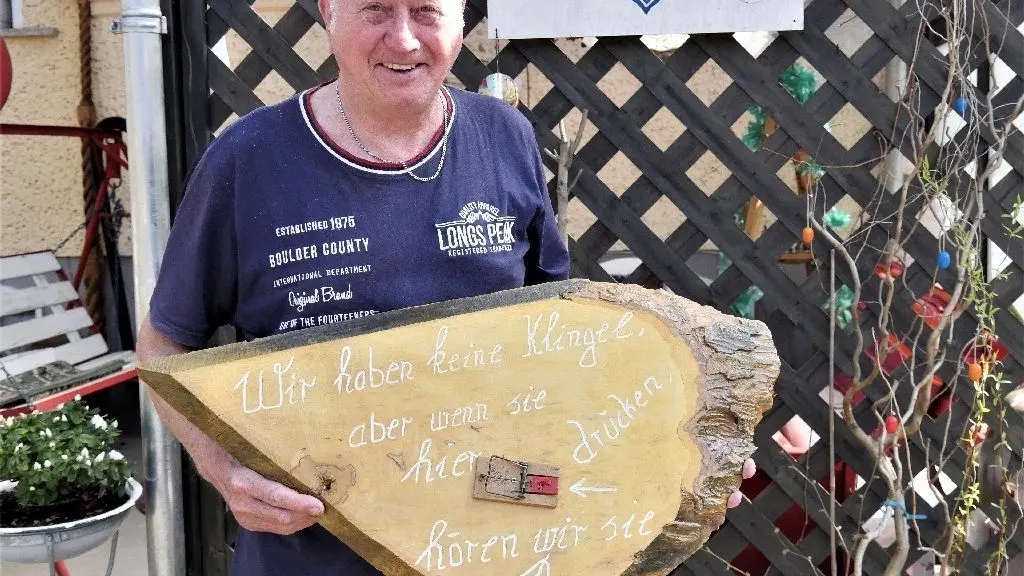 ESTABLISHED 1975
BOULDER COUNTY
INTERNATIONAL DEPARTMENT
Original Brand
OF THE FOURTEENERS
QUALITY APPAREL
LONGS PEAK
Wir haben keine Klingel,
aber wenn sie
hier drücken,
hören wir sie